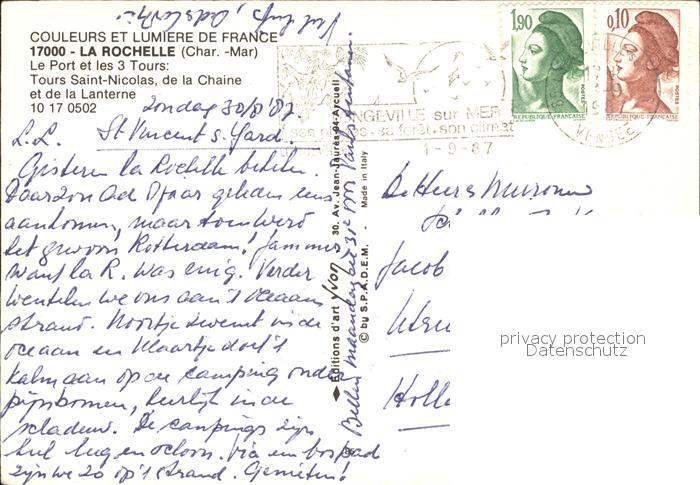 Veel liefs,
COULEURS ET LUMIERE DE FRANCE
17000 - LA ROCHELLE (Char. -Mar)
Le Port et les 3 Tours:
Tours Saint-Nicolas, de la Chaine
et de la Lanterne
10 17 0502
zondag 30/8 '87
St Vincent s. Jard.
L.L.
Gisteren la Rochelle bekeken.
Daar zou Ad jaar geleden eens
aankomen, maar toen werd
het gewoon Rotterdam! Jammer,
want la R. was enig. Verder
wentelen we ons aan 't oceaan
strand. Noortje zwemt in de
oceaan en Maartje doet 't
kalm aan op de camping onder
pijnbomen, heerlijk in de
schaduw. De campings zijn
heel leeg en schoon. Via een bospad
zijn we zo op 't strand. Genieten!
Bellen maandag de 31e
◆ Editions d'art YVON 30. Av. Jean-Jaurès-94-Arcueil
© by S.P.A.D.E.M. - Made in Italy
1,90
POSTES
REPUBLIQUE FRANCAISE
0,10
POSTES
REPUBLIQUE FRANCAISE
LONGEVILLE sur MER
sa forêt. son climat
1-9-87
VENDEE
De Heer
Jacob
Holl
privacy protection
Datenschutz